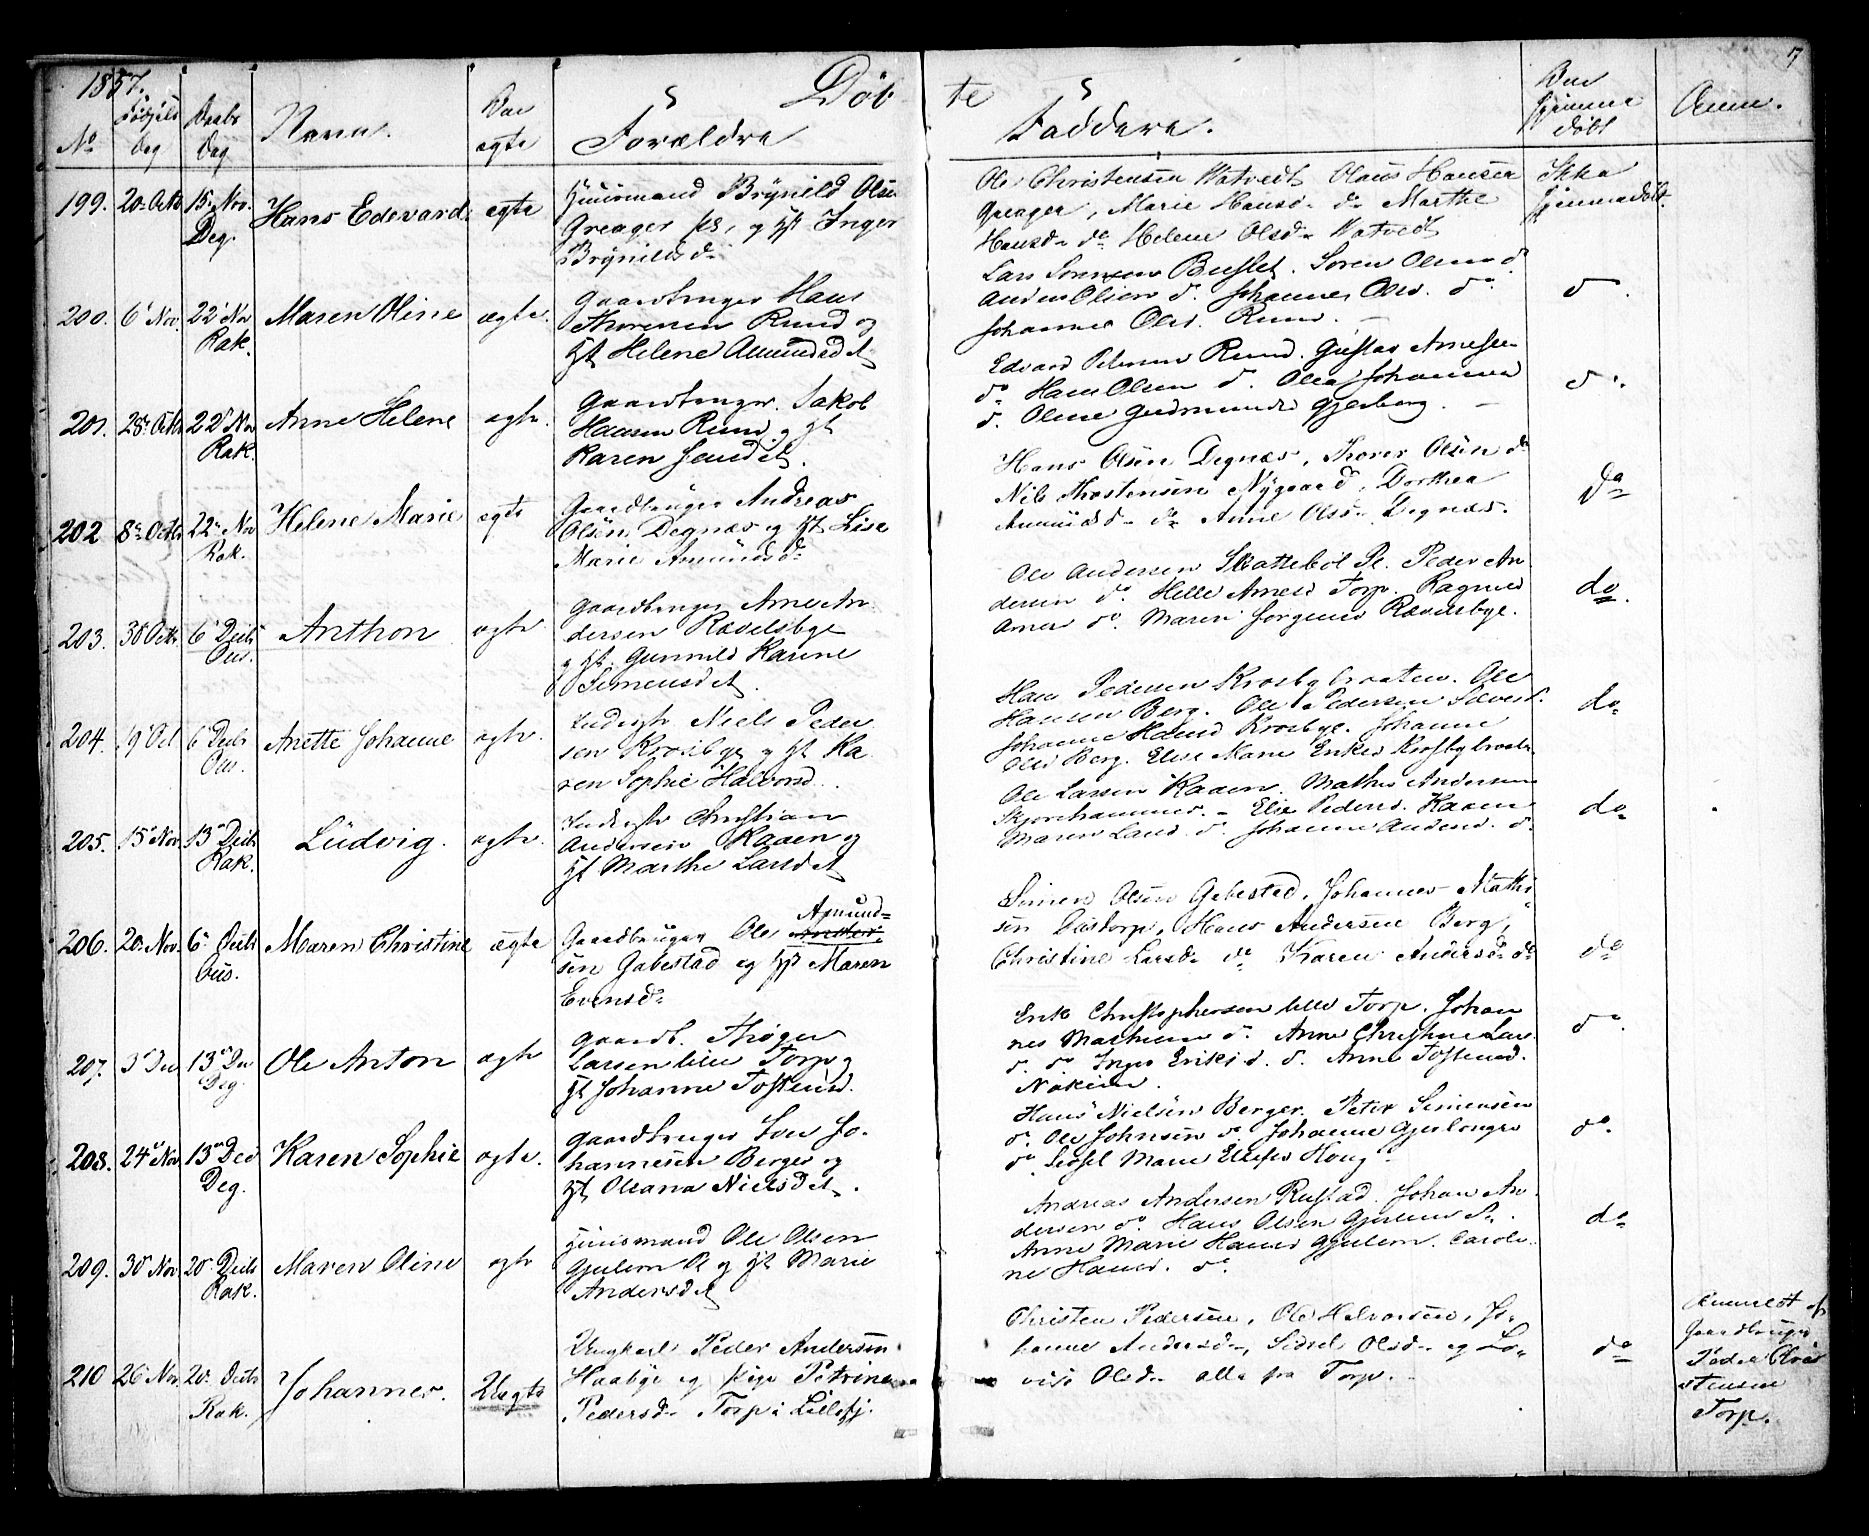 1857.
Döb
te
7
No
Fødsels
Dag
Daabs
Dag
Navn.
ægte
Forældre
Faddere.
hjemme
döbt
Anm.
199. 20. Oct. 15. Nov. Deg. Hans Edevard ægte
Huusmand Brynild Olsen
Greager og Inger
Brynilds d.
Ole Christensen Watvedt Olaus Hansen
Greager, Marie Hansd. do Marthe
Hansd. do Helene Olsd. Watvedt
Ikke
hjemmedøbt.
200. 6 Nov. 22 Nov Rak. Maren Oline ægte.
Gaardbruger Hans
Thoresen Rund og
Helene Amundsdt
Lars Sörensen Buslet. Soren Olsen do
Anders Olsen do. Johannes Olsd. do
Johanne Olsd. Rund. —
do.
201. 28. Oct 22 Nov Rak. Anne Helene ægte.
Gaardbruger Jakob
Hansen Rund og
Karen
Edvard Petersen Rund. Gustav Arnesen
do Hans Olsen do. Olea Johannesd
do. Oline Gudmundsd Gjerberg. —
do.
202 8. Octb 22. Nov Rak. Helene Marie ægte
Gaardbruger Andreas
Olsen Degnæs og Lise
Marie Amundsd.
Hans Olsen Degnæs, Thorer Olsen do
Nils Thorstensen Nygaard, Dorthea
Amundsd. do Anne Olsd. Degnæs.
do
203. 30 Octb 6 Decb Ous. Anthon ægte
Gaardbruger Arne An
dersen Ravelsbye
og Gunnild Karine
Simensdt.
Ole Andersen Skottebøl Pl. Peder An
dersen do. Helle Arnesd Torp. Ragnild
Arnes do. Maren Jørgensd Ravelsbye.
do.
204. 19 Oct 6 Decb Ous. Anette Johanne ægte.
Inderster Niels Peder
sen Krosbye og Ka
ren Sophie Halvorsd.
Hans Pedersen Krosbybraaten. Ole
Hansen Berg. Ole Pedersen
Johanne Hansd Krosbye. Johanne
Olsd Berg. Elise Marie Eriksd Krosbybraaten
do
205. 15 Nov. 13 Decb Rak. Ludvig. ægte.
Inderster Christian
Andersen Kaaen og
Marthe Larsdt
Ole Larsen Kaaen. Mathis Andersen
Skjørehammer. – Elie Pedersd. Kaaen
Maren Larsd. do. Johanne Andersd. do.
do
206. 20. Nov. 6. Decb Ous. Maren Christine ægte
Amund=
Gaardbruger Ole
sen Gabestad og Maren
Evensd.
Simen Olsen Gabestad, Johannes Mathi
sen Hans Andersen Berg,
Christine Larsd. do Karen Andersd. do
do
207. 3 Dec 13 Dec Deg. Ole Anton ægte
Gaardb. Thøger
Larsen lille Torp og
Johanne Tostensd.
Erik Christophersen lille Torp. Johan
nes Mathisen do. Anne Christine Lars
d. do Inger Eriksd. do. Anne Tostensd.
do.
208. 24 Nov 13 Dec Deg. Karen Sophie ægte.
Gaardbruger Jo=
hannesen Berger og
Oleana Nielsdt.
Hans Nielsen Berger. Peter Simensen
do. Ole Johnsen do Johanne
do. Sidsel Marie Haug
do.
209. 30 Nov. 20. Decb Rak. Maren Oline ægte
Huusmand Ole Olsen
Gjulem og Marie
Andersdt
Andreas Andersen Rustad. Johan An
dersen do. Hans Olsen Gjulem
Anne Marie Hansd Gjulem. Caroli
ne Hansd. do
do
210 26 Nov. 20. Decb Rak. Johannes. Uægte
Ungkarl Peder Andersen
Haabye og Pige Petrine
Pedersd. Torp i
Christen Pedersen, Ole Halvorsen, Jo=
hanne Andersd., Sidsel Olsd. og Lo=
vise Olsd. alle fra Torp.
do
Anmeldt af
Gaardbruger
Peder Chri
stensen
Torp.